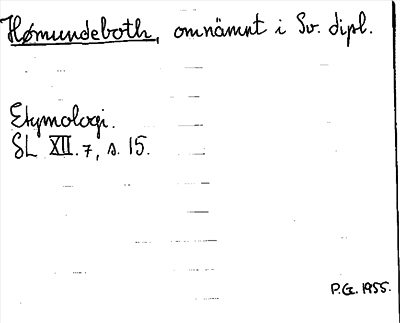 Hømundeboth, omnämnt i Sv. dipl.
Etymologi.
SL XII.7, s. 15.
P.G. 1955.